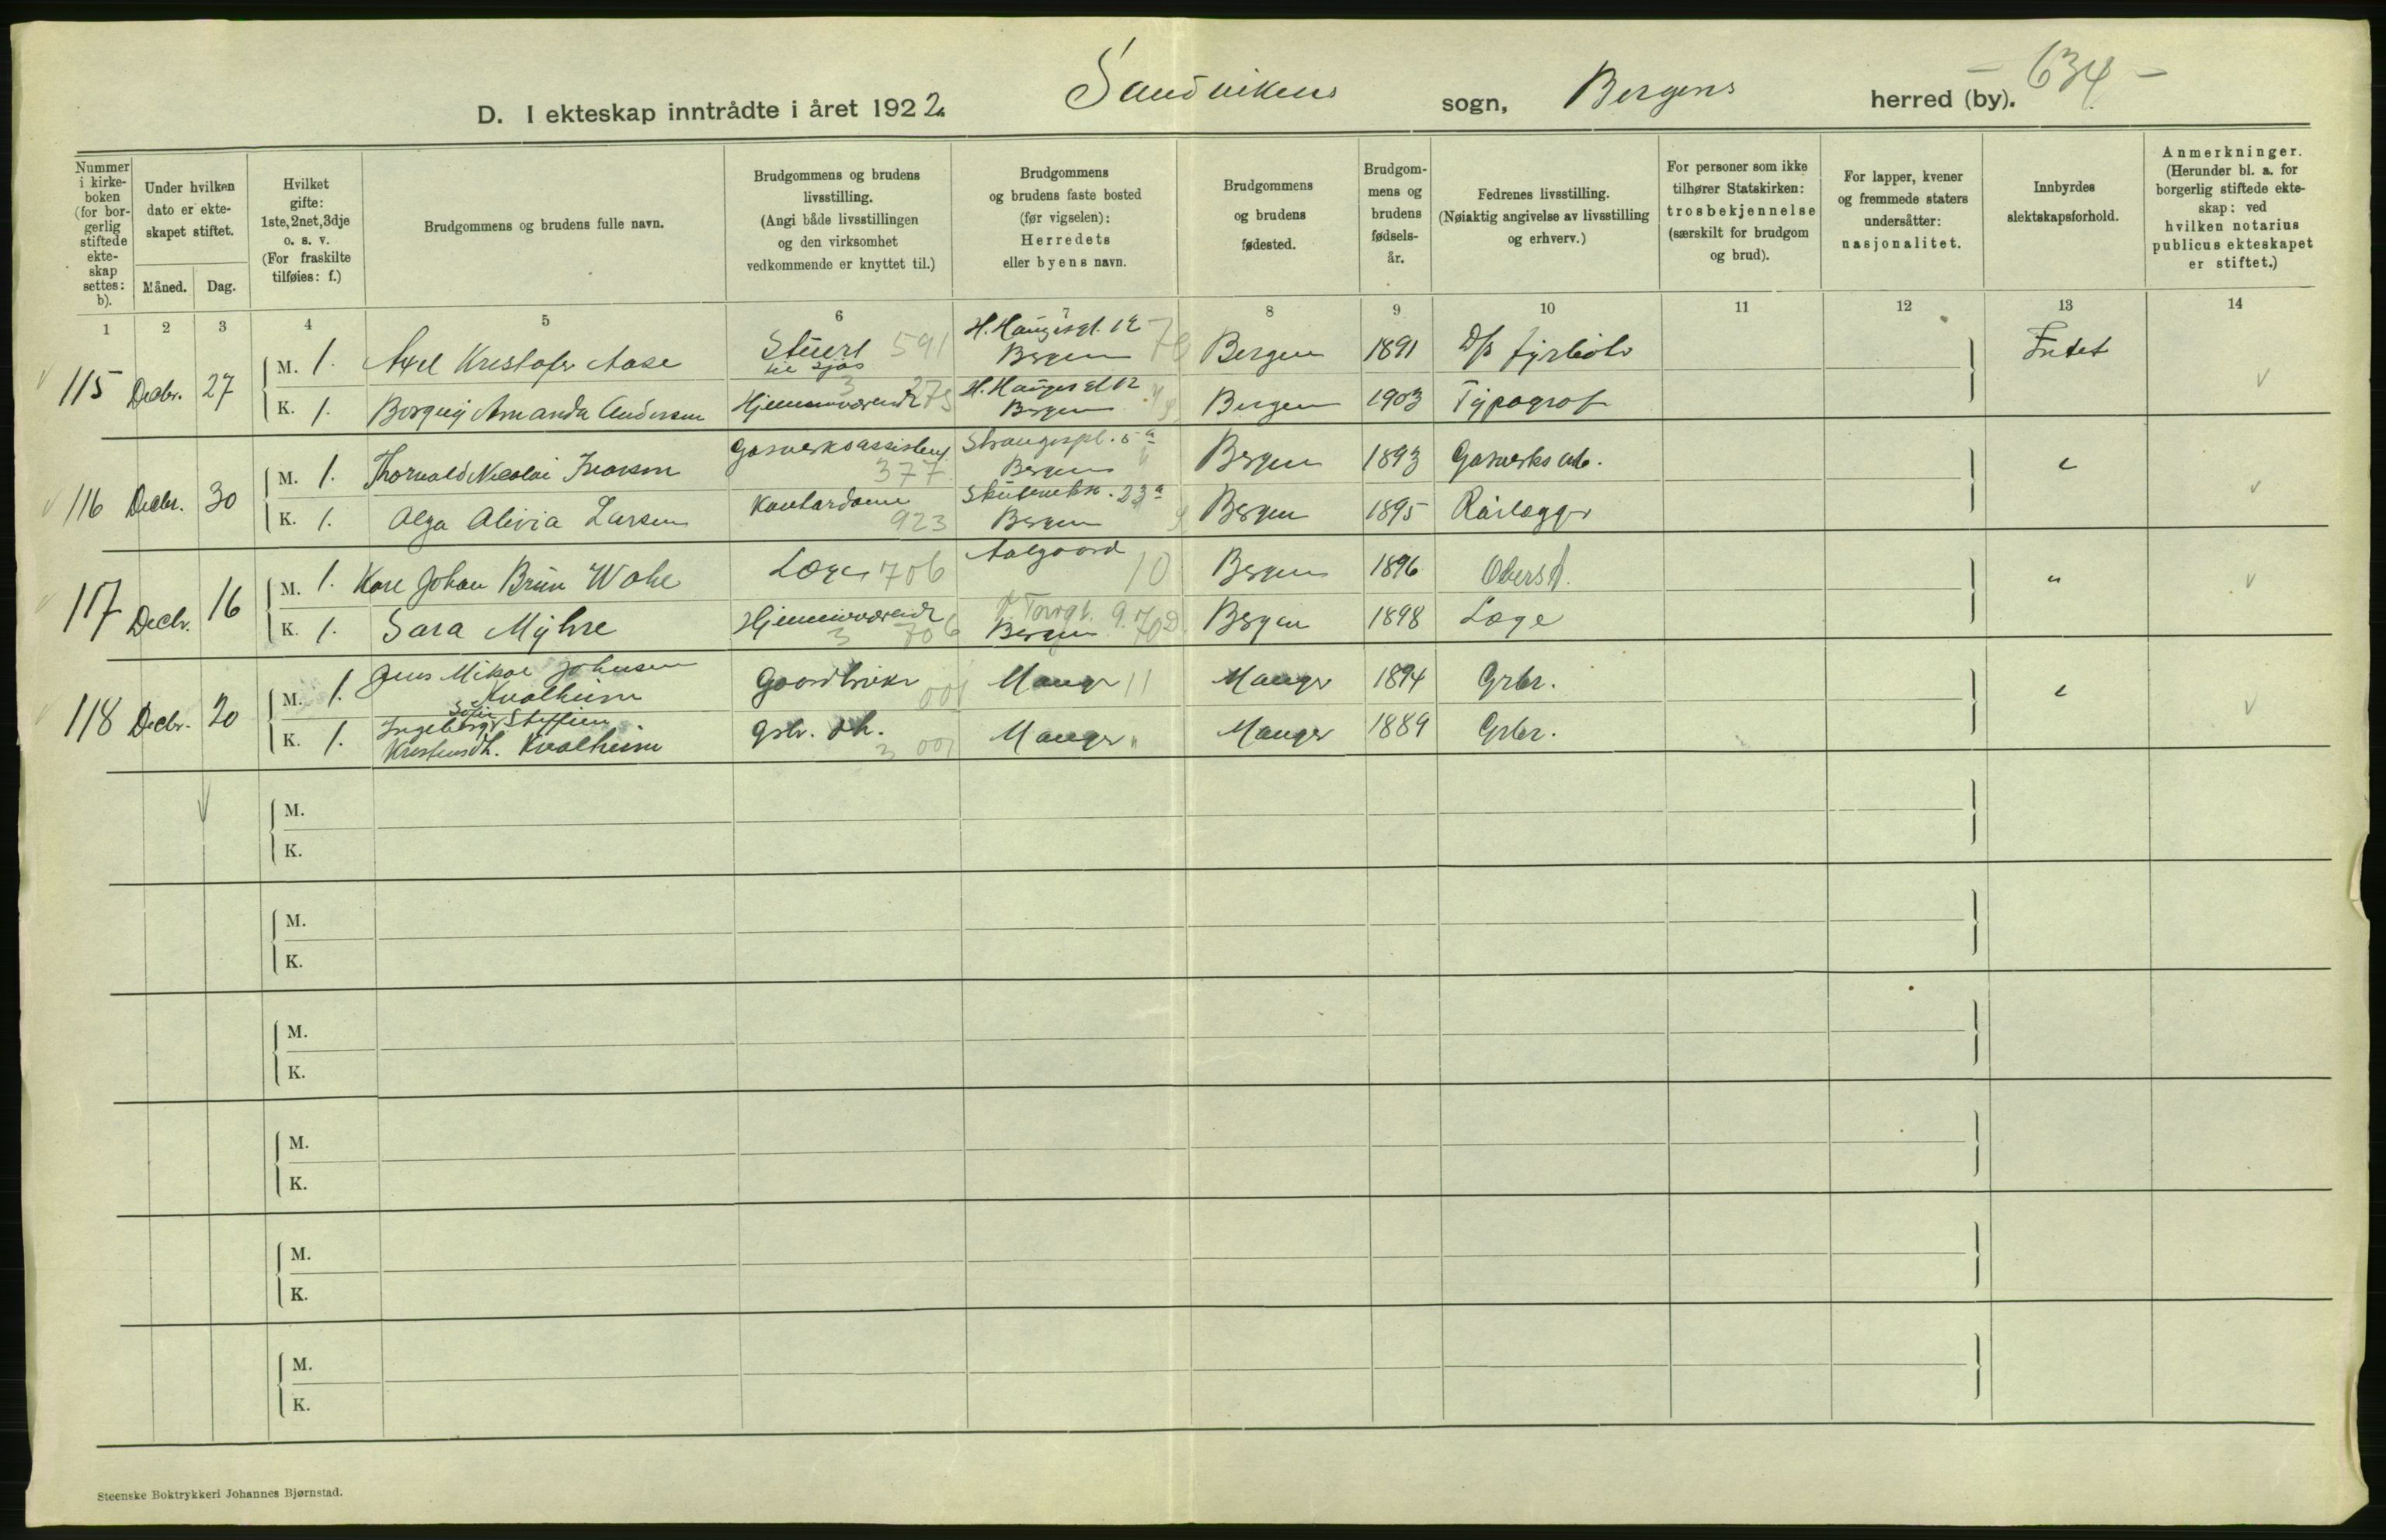 D. I ekteskap inntrådte i året 1922. Sandvikens sogn, Bergens herred (by). - 634 -
Nummer i kirke- boken (for bor- gerlig stiftede ekte- skap settes: b).
Under hvilken dato er ekte- skapet stiftet.
Måned. Dag.
Hvilket gifte: 1ste, 2net, 3dje o. s. v. (For fraskilte tilføies: f.)
Brudgommens og brudens fulle navn.
Brudgommens og brudens livsstilling. (Angi både livsstillingen og den virksomhet vedkommende er knyttet til.)
Brudgommens og brudens faste bosted (før vigselen): Herredets eller byens navn.
Brudgommens og brudens fødested.
Brudgom- mens og brudens fødsels- år.
Fedrenes livsstilling. (Nøiaktig angivelse av livsstilling og erhverv.)
For personer som ikke tilhører Statskirken: trosbekjennelse (særskilt for brudgom og brud).
For lapper, kvener og fremmede staters undersåtter: nasjonalitet.
Innbyrdes slektskapsforhold.
Anmerkninger. (Herunder bl. a. for borgerlig stiftede ekte- skap: ved hvilken notarius publicus ekteskapet er stiftet.)
1 2 3 4 5 6 7 8 9 10 11 12 13 14
115 Decbr. 27 M. 1. Axel Kristofer Aase 591 H. Haugesgt. 12 Bergen Bergen 1891 Intet
K. 1. Borgny Amanda Andersen Hjemmeværende H. Haugesgt 12 Bergen Bergen 1903 Typograf
116 Decbr. 30 M. 1. Thorvald Nicolai Gasverksassistent 377 Strangespl. 5a Bergen Bergen 1893 Gasverksarb. "
K. 1. Olga Alivia Larsen Kontordame 923 23a Bergen Bergen 1895 Rørlegger
117 Decbr. 16 M. 1. Kare Johan Brun Læge 706 Aalgaard 10 Bergen 1896 Oberst. "
K. 1. Sara Myhre Hjemmeværende 3 706 Torvgt. 9. Bergen Bergen 1898 Læge
118 Decbr. 20 M. 1. Jens Mikal Johnsen Kvalheim Gaardbruker 001 Manger 11 Manger 1894 Grbr. "
K. 1. Ingeborg Sofie Steffine Kristensdt. Kvalheim Grbr. dt. 3 001 Manger " Manger 1889 Grbr.
M.
K.
M.
K.
M.
K.
M.
K.
M.
K.
M.
K.
Steenske Boktrykkeri Johannes Bjørnstad.